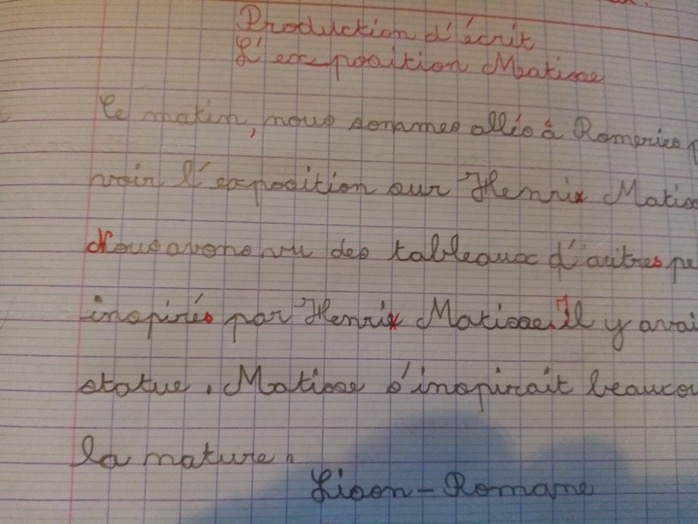 Production d'écrit
L'exposition Matisse
Ce matin, nous sommes allés à Romeries
voir l'exposition sur Henrix Matiss
Nous avons vu des tableaux d'autres pe
inspirés par Henrix Matisse. Il y avai
statue. Matisse s'inspirait beaucou
la nature.
Lison - Romane